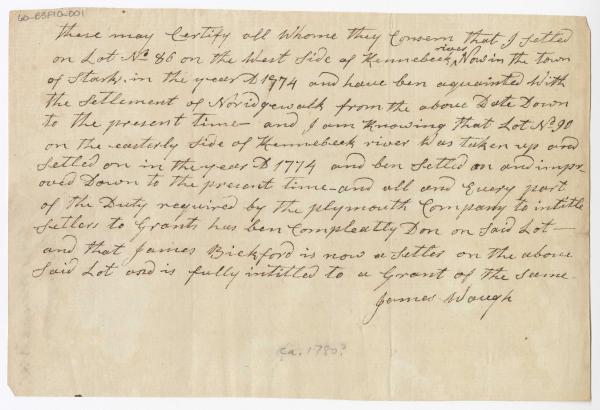 60-ESF10-001
these may Certify all Whome they Concern that I settled
on Lot No 86 on the West Side of Kennebeck river Now in the town
of Starks in the year D 1774 and have ben aquainted With
the Settlement of Noridgewalk from the above Date Down
to the present time - and I am Knowing that Lot No 90
on the easterly Side of Kennebeck river Was taken up and
Settled on in the year D 1774 and ben Settled on and impr-
oved Down to the present time - and all and Every part
of the Duty required by the plymouth Company to intitle
Settlers to Grants has ben Compleatly Don on Said Lot -
and that James Bickford is now a Settler on the above
Said Lot and is fully intitled to a Grant of the same -
James Waugh
ca. 1780?